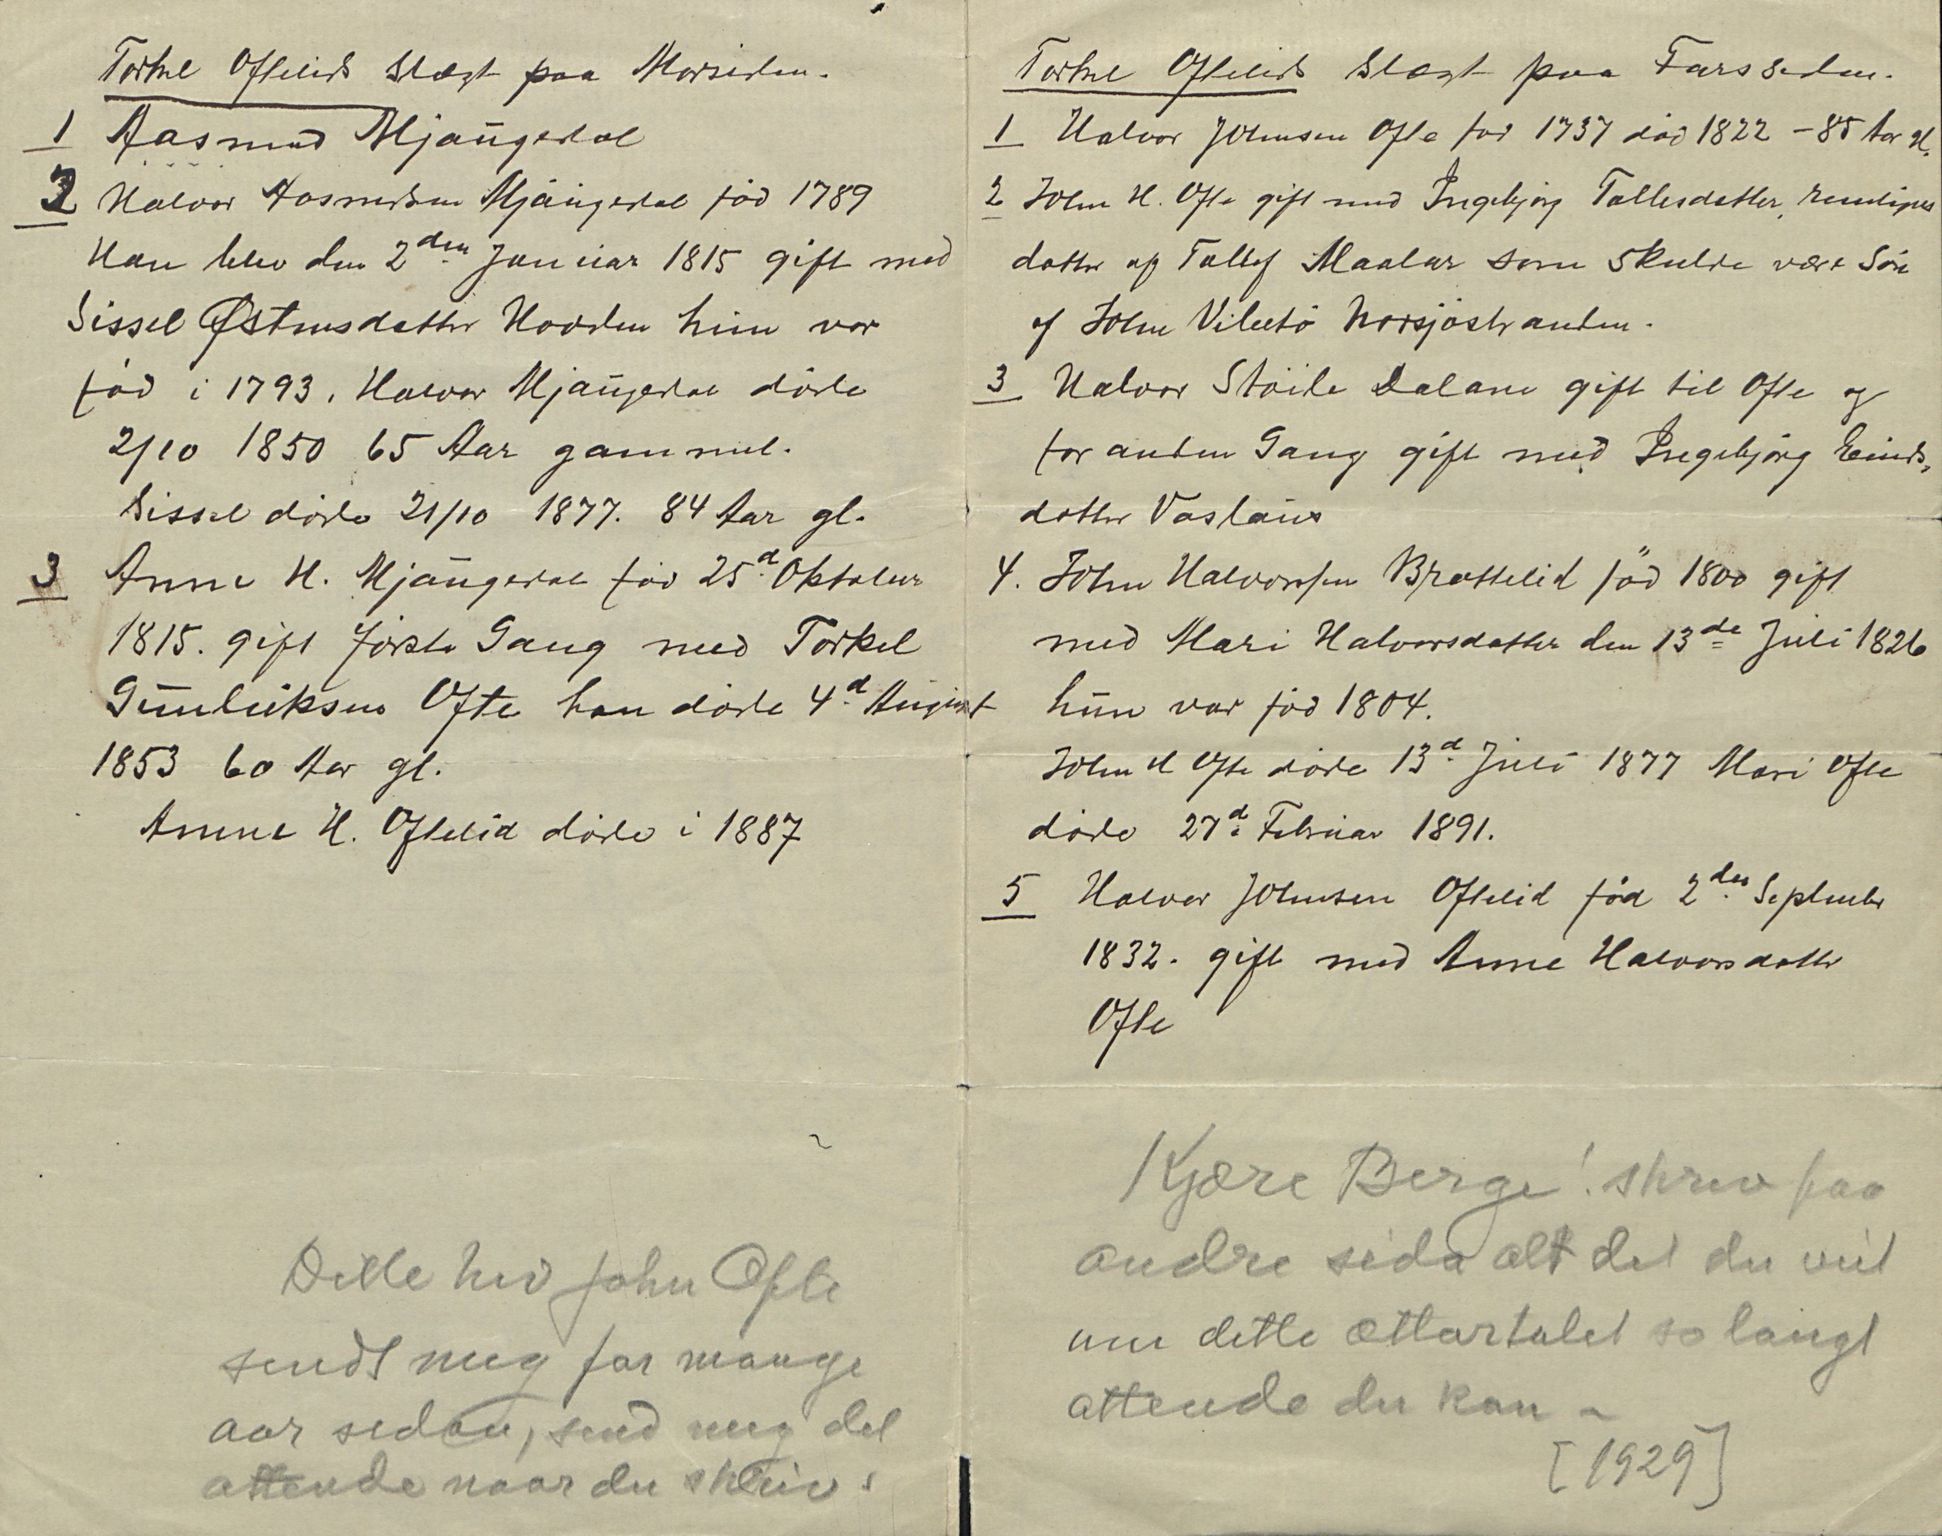 Torkel Oftelids Slægt paa Morsiden.
1 Aasmund Mjaugedal
2 Halvor Aasmundsen Mjaugedal fød 1789
Han blev den 2den Januar 1815 gift med
Sissel Østensdatter Hovden hun var
fød i 1793. Halvor Mjaugedal døde
2/10 1850 65 Aar gammel.
Sissel døde 21/10 1877. 84 Aar gl.
3 Anne H. Mjaugedal fød 25d. Oktober
1815. gift første Gang med Torkel
Gunleiksen Ofte han døde 4d. August
1853 60 Aar gl.
Anne H. Oftelid døde i 1887
Dette hev John Ofte
sendt meg for mange
aar sedan, send meg det
attende naar du skriv.
Torkel Oftelids Slægt paa Farssiden.
1 Halvor Johnsen Ofte fød 1737 død 1822 - 85 Aar gl.
2 John H. Ofte gift med Ingebjørg Tallefsdatter,
datter af Tallef Maalar som skulde være Søn
af John Vibetø Norsjøstranden.
3 Halvor Støile Dalane gift til Ofte og
for anden Gang gift med Ingebjørg Einds,
datter Vaslaus
4. John Halvorsen Brattelid fød 1800 gift
med Mari Halvorsdatter den 13de Juli 1826
hun var fød 1804.
John H Ofte døde 13d. Juli 1877 Mari Ofte
døde 27d. Februar 1891.
5 Halvor Johnsen Oftelid fød 2den September
1832. gift med Anne Halvorsdatter
Ofte
Kjære Berge! skriv paa
andre sida alt det du veit
um dette ættartalet so langt
attende du kan -
[1929]